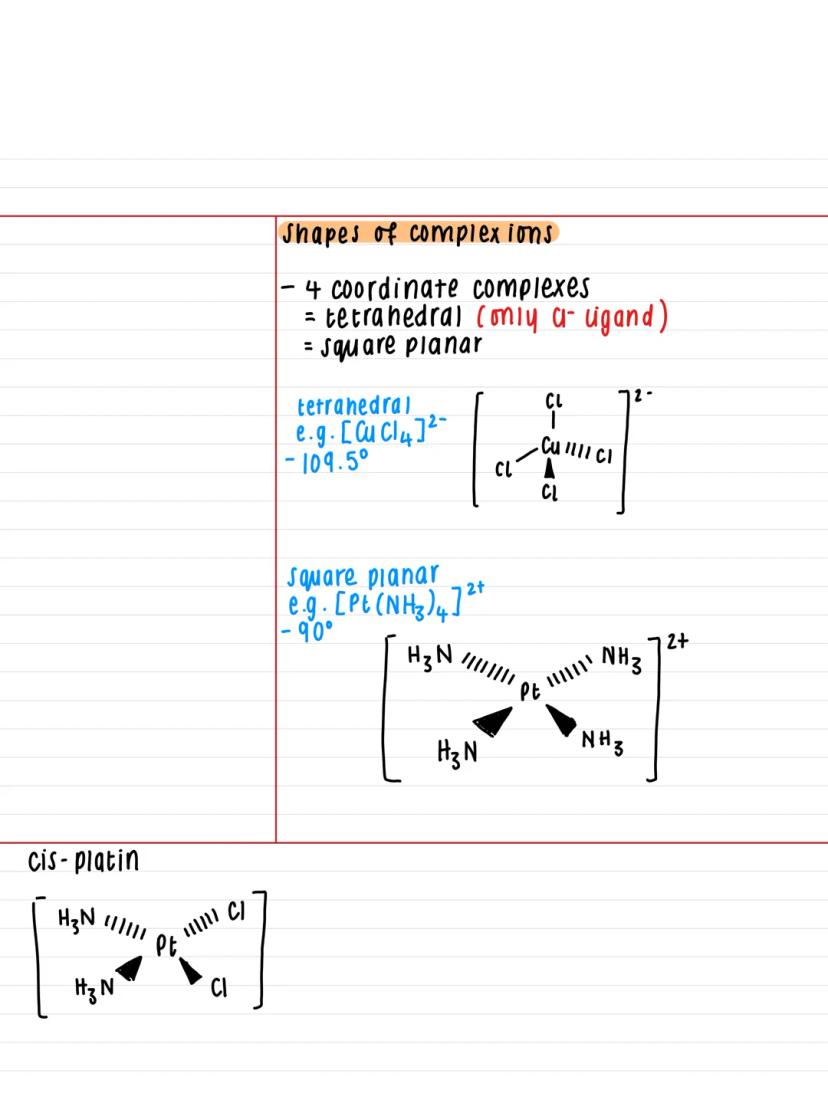 shapes of complex ions
- 4 coordinate complexes
= tetrahedral (only Cl- ligand)
= square planar
tetrahedral
e.g. [CuCl₄]²⁻
- 109.5°
[Cl Cu Cl Cl Cl]²⁻
square planar
e.g. [Pt(NH₃)₄]²⁺
- 90°
[H₃N NH₃ Pt H₃N NH₃]²⁺
cis-platin
[H₃N Cl Pt H₃N Cl]